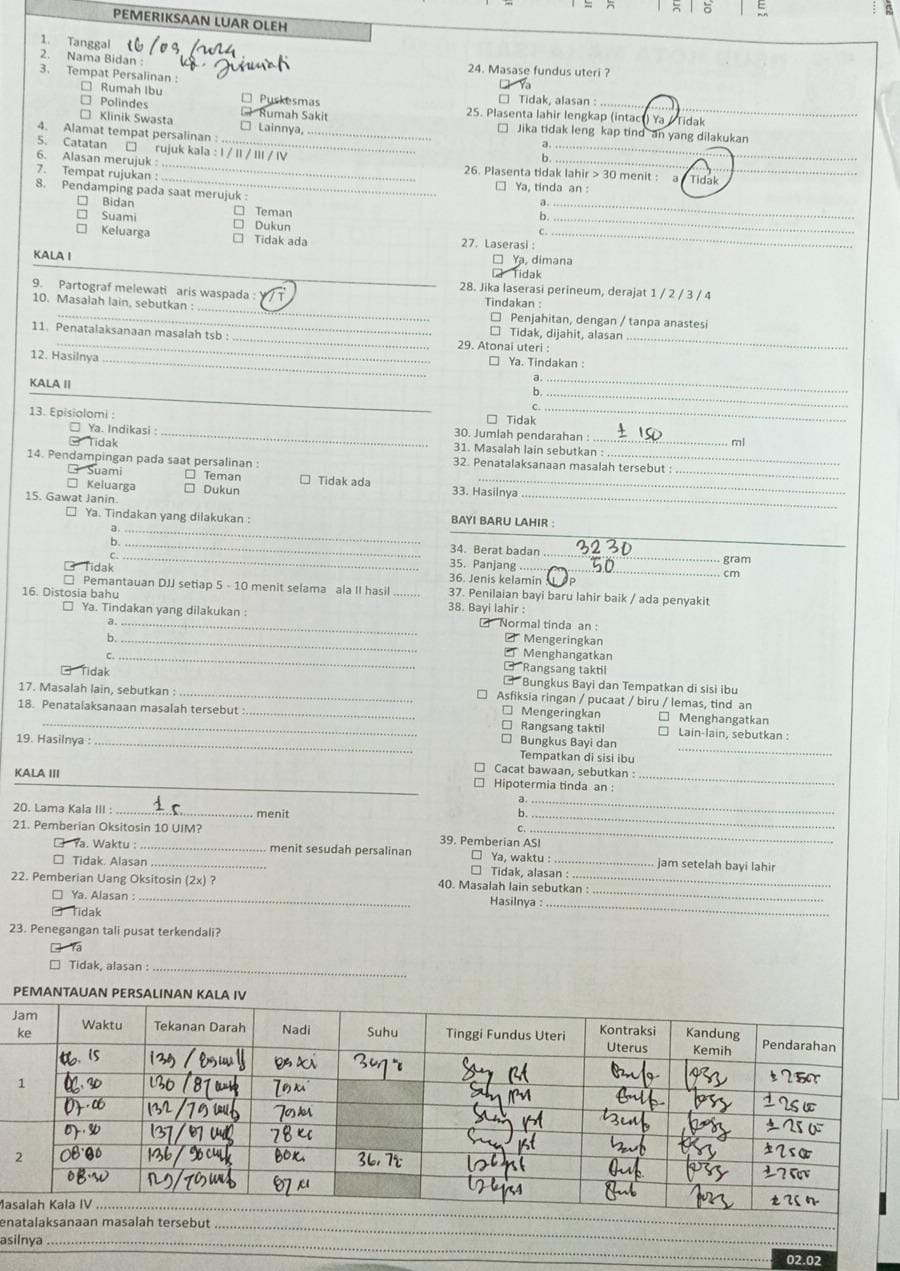 PEMERIKSAAN LUAR OLEH
1. Tanggal
2. Nama Bidan :
3. Tempat Persalinan :
Rumah Ibu
Polindes
Klinik Swasta
Puskesmas
Rumah Sakit
Lainnya,
4. Alamat tempat persalinan :
5. Catatan rujuk kala : I / II / III / IV
6. Alasan merujuk :
7. Tempat rujukan :
8. Pendamping pada saat merujuk :
Bidan
Suami
Keluarga
Teman
Dukun
Tidak ada
KALA I
9. Partograf melewati aris waspada : Y / T
10. Masalah lain, sebutkan :
11. Penatalaksanaan masalah tsb :
12. Hasilnya
KALA II
13. Episiolomi :
Ya. Indikasi :
Tidak
14. Pendampingan pada saat persalinan :
Suami
Keluarga
Teman
Dukun
Tidak ada
15. Gawat Janin.
Ya. Tindakan yang dilakukan :
a.
b.
c.
Tidak
Pemantauan DJJ setiap 5 - 10 menit selama ala II hasil
16. Distosia bahu
Ya. Tindakan yang dilakukan :
a.
b.
c.
Tidak
17. Masalah lain, sebutkan :
18. Penatalaksanaan masalah tersebut :
19. Hasilnya :
KALA III
20. Lama Kala III : menit
21. Pemberian Oksitosin 10 UIM?
Ya. Waktu : menit sesudah persalinan
Tidak. Alasan
22. Pemberian Uang Oksitosin (2x) ?
Ya. Alasan :
Tidak
23. Penegangan tali pusat terkendali?
Ya
Tidak, alasan :
24. Masase fundus uteri ?
Ya
Tidak, alasan :
25. Plasenta lahir lengkap (intact) Ya / Tidak
Jika tidak leng kap tind an yang dilakukan
a.
b.
26. Plasenta tidak lahir > 30 menit : a / Tidak
Ya, tinda an :
a.
b.
c.
27. Laserasi :
Ya, dimana
Tidak
28. Jika laserasi perineum, derajat 1 / 2 / 3 / 4
Tindakan :
Penjahitan, dengan / tanpa anastesi
Tidak, dijahit, alasan
29. Atonai uteri :
Ya. Tindakan :
a.
b.
c.
Tidak
30. Jumlah pendarahan : ± 150 ml
31. Masalah lain sebutkan :
32. Penatalaksanaan masalah tersebut :
33. Hasilnya
BAYI BARU LAHIR :
34. Berat badan 3230 gram
35. Panjang 50 cm
36. Jenis kelamin L / P
37. Penilaian bayi baru lahir baik / ada penyakit
38. Bayi lahir :
Normal tinda an :
Mengeringkan
Menghangatkan
Rangsang taktil
Bungkus Bayi dan Tempatkan di sisi ibu
Asfiksia ringan / pucaat / biru / lemas, tind an
Mengeringkan
Rangsang taktil
Bungkus Bayi dan
Tempatkan di sisi ibu
Menghangatkan
Lain-lain, sebutkan :
Cacat bawaan, sebutkan :
Hipotermia tinda an :
a.
b.
c.
39. Pemberian ASI
Ya, waktu : jam setelah bayi lahir
Tidak, alasan :
40. Masalah lain sebutkan :
Hasilnya :
PEMANTAUAN PERSALINAN KALA IV
Jam ke Waktu Tekanan Darah Nadi Suhu Tinggi Fundus Uteri Kontraksi Uterus Kandung Kemih Pendarahan
1
06.15
06.30 130 / 87
07.00 132 / 79
137 / 87 78
2
08.00 136 / 90 80 36,7
87
Masalah Kala IV
enatalaksanaan masalah tersebut
asilnya
02.02